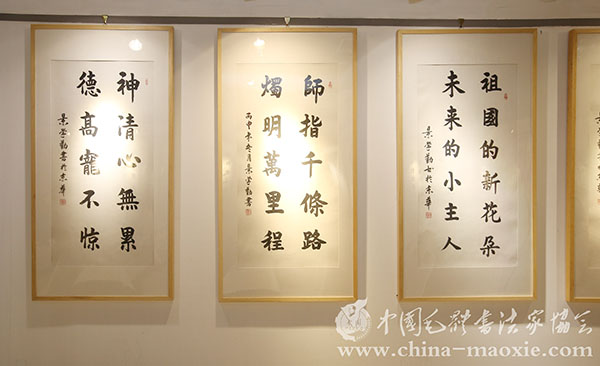 神清心無累
德高寵不惊
景学勤書於京華
師指千條路
燭明萬里程
丙申年冬月景学勤書
祖國的新花朵
未来的小主人
景学勤书於京華
中国毛体书法家协会
www.china-maoxie.com